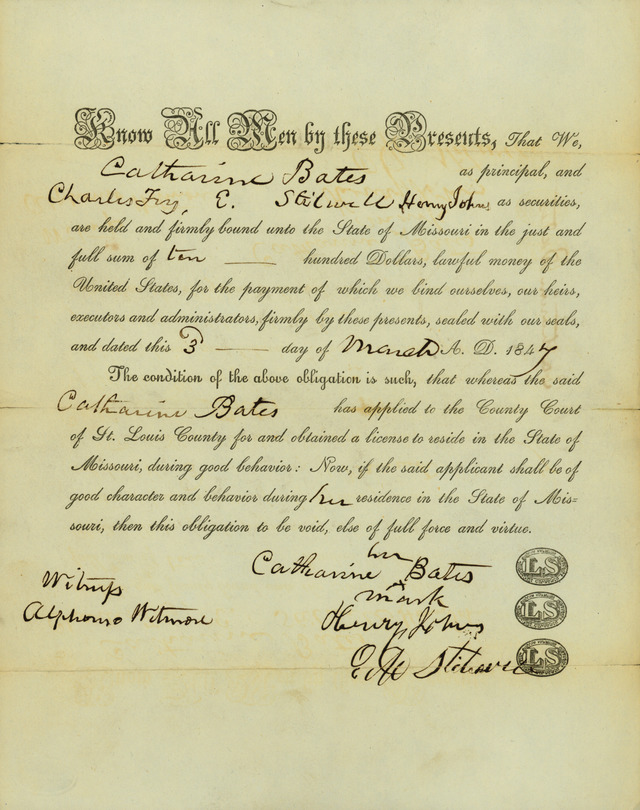 Know All Men by these Presents, That We,
Catharine Bates as principal, and
Charles Fry, E. Stilwell Henry Johns as securities,
are held and firmly bound unto the State of Missouri in the just and
full sum of ten —— hundred Dollars, lawful money of the
United States, for the payment of which we bind ourselves, our heirs,
executors and administrators, firmly by these presents, sealed with our seals,
and dated this 3 —— day of March A. D. 1847
The condition of the above obligation is such, that whereas the said
Catharine Bates has applied to the County Court
of St. Louis County for and obtained a license to reside in the State of
Missouri, during good behavior: Now, if the said applicant shall be of
good character and behavior during her residence in the State of Mis=
souri, then this obligation to be void, else of full force and virtue.
her
Catharine Bates LS
mark
Witness
Alphonso Wetmore
Henry Johns LS
Stilwell LS